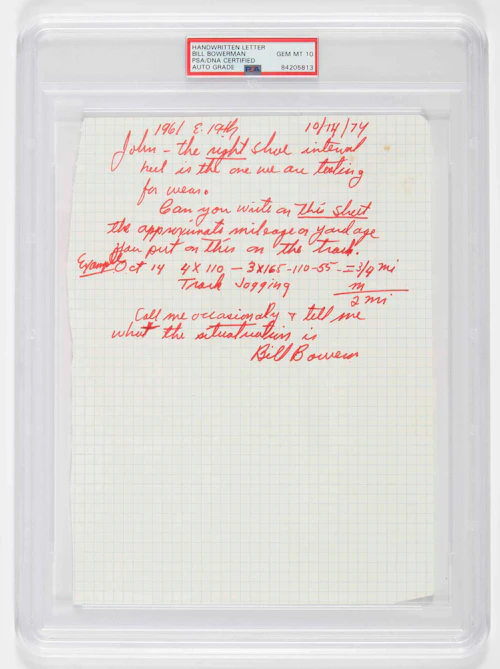 HANDWRITTEN LETTER
BILL BOWERMAN GEM MT 10
PSA/DNA CERTIFIED
AUTO GRADE PSA 84205813
1961 E. 19th 10/14/74
John - the right shoe internal
heel is the one we are testing
for wear.
Can you write on this sheet
the approximate mileage or yardage
you put on this on the track.
Example Oct 14 4 x 110 - 3x165-110-55 - = 3/4 mi
Track Jogging m
2 mi
Call me occasionaly & tell me
what the situatuation is
Bill Bowerm